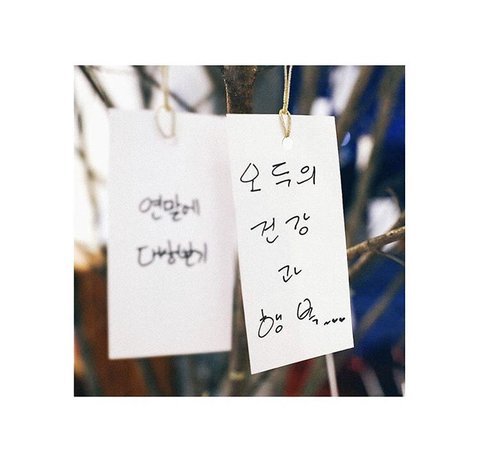 연말에
대상받기
오두의
건강
과
행복...